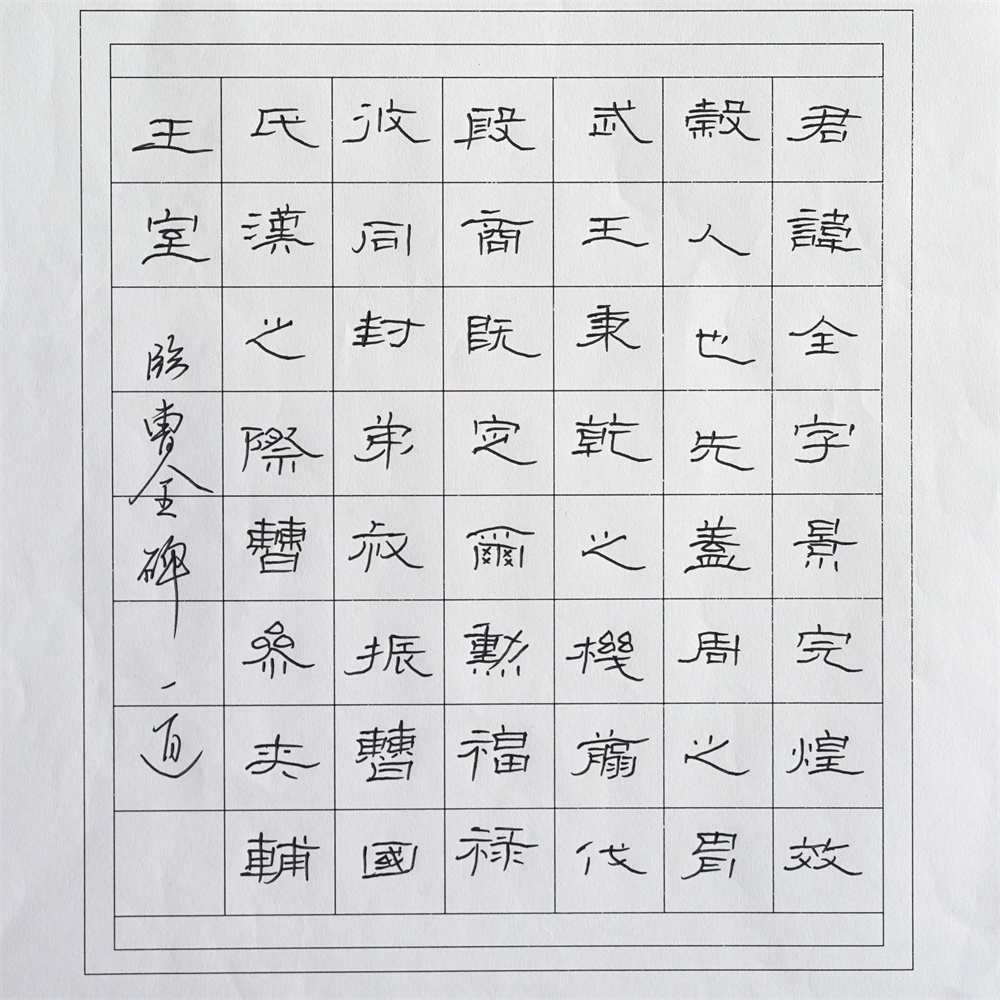 君諱全字景完煌效
穀人也先蓋周之胄
武王秉乾之機翦代
殷商既定爾勳福祿
攸同封弟叔振曹國
氏漢之際曹參夾輔
王室
臨曹全碑一通